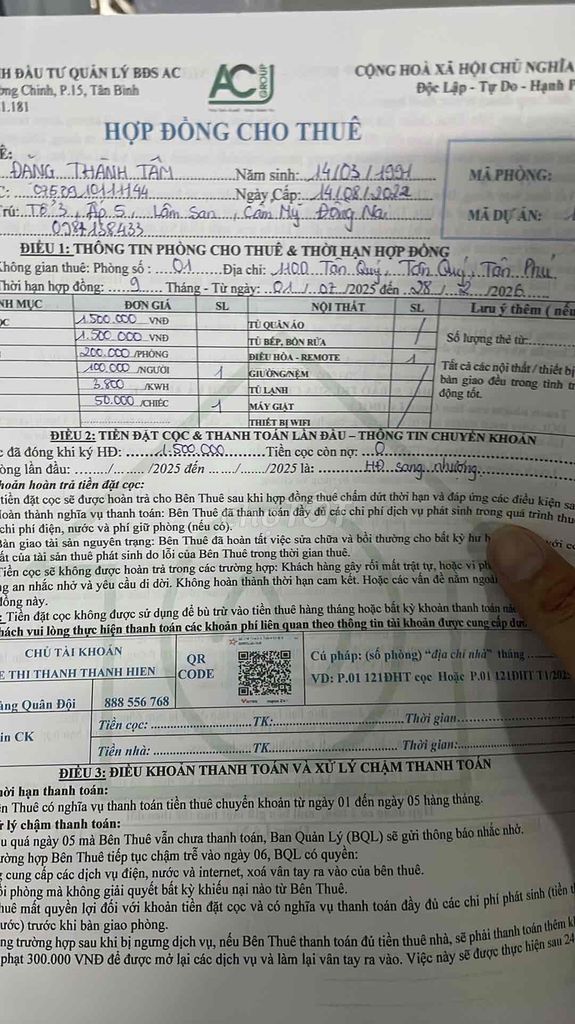 H ĐẦU TƯ QUẢN LÝ BĐS AC
ờng Chinh, P.15, Tân Bình
1.181
AC GROUP
CỘNG HOÀ XÃ HỘI CHỦ NGHĨA
Độc Lập - Tự Do - Hạnh P
HỢP ĐỒNG CHO THUÊ
Ê:
ĐẶNG THÀNH TÂM Năm sinh: 14/03/1991
C: 075091011144 Ngày Cấp: 14/08/2022
trú: Tổ 3, Ấp 5, Lâm San, Cẩm Mỹ, Đồng Nai
0987138433
MÃ PHÒNG:
MÃ DỰ ÁN:
ĐIỀU 1: THÔNG TIN PHÒNG CHO THUÊ & THỜI HẠN HỢP ĐỒNG
Không gian thuê: Phòng số : 01 Địa chỉ: Tân Quý, Tân Quý, Tân Phú
Thời hạn hợp đồng: 9 Tháng - Từ ngày: 01 / 07 /2025 đến 28 / 2 /2026
NH MỤC ĐƠN GIÁ SL NỘI THẤT SL Lưu ý thêm ( nếu
ỌC 1.500.000 VNĐ TỦ QUẦN ÁO
1.500.000 VNĐ TỦ BẾP, BỒN RỬA
200.000 /PHÒNG ĐIỀU HÒA - REMOTE 1
100.000 /NGƯỜI 1 GIƯỜNG/NỆM
3.800 /KWH TỦ LẠNH
50.000 /CHIẾC 1 MÁY GIẶT
THIẾT BỊ WIFI
Số lượng thẻ từ:
Tất cả các nội thất / thiết bị
bàn giao đều trong tình tr
động tốt.
ĐIỀU 2: TIỀN ĐẶT CỌC & THANH TOÁN LẦN ĐẦU – THÔNG TIN CHUYỂN KHOẢN
c đã đóng khi ký HĐ: 1.500.000 Tiền cọc còn nợ: 0
òng lần đầu: ....../....../2025 đến ....../....../2025 là: HĐ sang nhượng
hoản hoàn trả tiền đặt cọc:
tiền đặt cọc sẽ được hoàn trả cho Bên Thuê sau khi hợp đồng thuê chấm dứt thời hạn và đáp ứng các điều kiện sa
Hoàn thành nghĩa vụ thanh toán: Bên Thuê đã thanh toán đầy đủ các chi phí dịch vụ phát sinh trong quá trình thu
chi phí điện, nước và phí giữ phòng (nếu có).
Bàn giao tài sản nguyên trạng: Bên Thuê đã hoàn tất việc sửa chữa và bồi thường cho bất kỳ hư h
ất của tài sản thuê phát sinh do lỗi của Bên Thuê trong thời gian thuê.
Tiền cọc sẽ không được hoàn trả trong các trường hợp: Khách hàng gây rối mất trật tự, hoặc vi ph
g an nhắc nhở và yêu cầu di dời. Không hoàn thành thời hạn cam kết. Hoặc các vấn đề nằm ngoài
đồng này.
: Tiền đặt cọc không được sử dụng để bù trừ vào tiền thuê hàng tháng hoặc bất kỳ khoản thanh toán nào
hách vui lòng thực hiện thanh toán các khoản phí liên quan theo thông tin tài khoản được cung cấp dưới
CHỦ TÀI KHOẢN
E THI THANH THANH HIEN
QR CODE
Cú pháp: (số phòng) “địa chỉ nhà” tháng
VD: P.01 121ĐHT cọc Hoặc P.01 121ĐHT T1/202
àng Quân Đội 888 556 768
in CK
Tiền cọc: TK: Thời gian
Tiền nhà: TK Thời gian:
ĐIỀU 3: ĐIỀU KHOẢN THANH TOÁN VÀ XỬ LÝ CHẬM THANH TOÁN
hời hạn thanh toán:
n Thuê có nghĩa vụ thanh toán tiền thuê chuyển khoản từ ngày 01 đến ngày 05 hàng tháng.
ử lý chậm thanh toán:
u quá ngày 05 mà Bên Thuê vẫn chưa thanh toán, Ban Quản Lý (BQL) sẽ gửi thông báo nhắc nhở.
ường hợp Bên Thuê tiếp tục chậm trễ vào ngày 06, BQL có quyền:
g cung cấp các dịch vụ điện, nước và internet, xoá vân tay ra vào của bên thuê.
ồi phòng mà không giải quyết bất kỳ khiếu nại nào từ Bên Thuê.
huê mất quyền lợi đối với khoản tiền đặt cọc và có nghĩa vụ thanh toán đầy đủ các chi phí phát sinh (tiền t
ước) trước khi bàn giao phòng.
ng trường hợp sau khi bị ngưng dịch vụ, nếu Bên Thuê thanh toán đủ tiền thuê nhà, sẽ phải thanh toán thêm k
phạt 300.000 VNĐ để được mở lại các dịch vụ và làm lại vân tay ra vào. Việc này sẽ được thực hiện sau 24